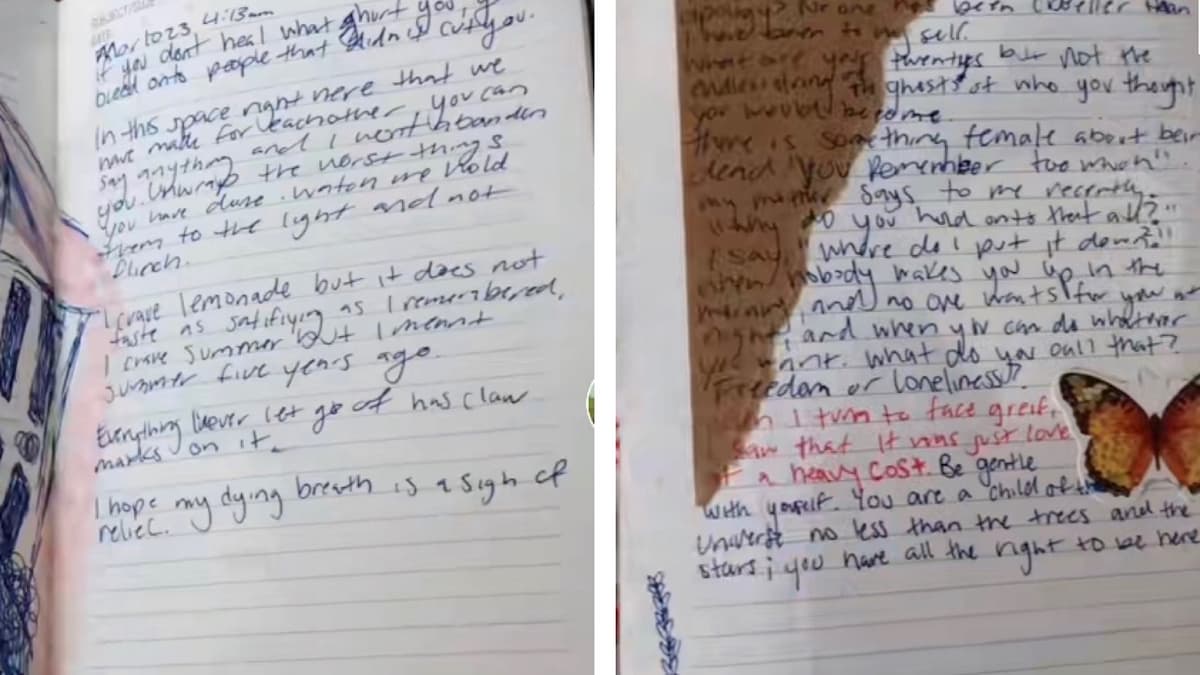 SUBJECT/
DATE:
Mar 1023 4:13am
if you dont heal what ghurt you,
bleed onto people that didn't cut you.
In this space right here that we
have made for eachother, you can
say anything and I wont abandon
you. Unwrap the worst things
you have done. watch me hold
them to the light and not
flinch.
I crave lemonade but it does not
taste as satifiying as I remembered.
I crave summer but I meant
summer five years ago.
Everything I never let go of has claw
marks on it.
I hope my dying breath is a sigh of
relief.
apology? No one has been crueller than
I have been to my self.
What are your twenties but not the
endless string of ghosts of who you thought
you would become.
There is something female about being
dead "you Remember too much"
my mother says to me recently.
"why do you hold onto that all?"
I say, "where do i put it down?"
when nobody wakes you up in the
morning, and no one waits for you at
night, and when you can do whatever
you want. what do you call that?
Freedom or loneliness?
when I turn to face greif,
I saw that it was just love
at a heavy cost. Be gentle
with yourself. You are a child of the
universe no less than the trees and the
stars; you have all the right to be here